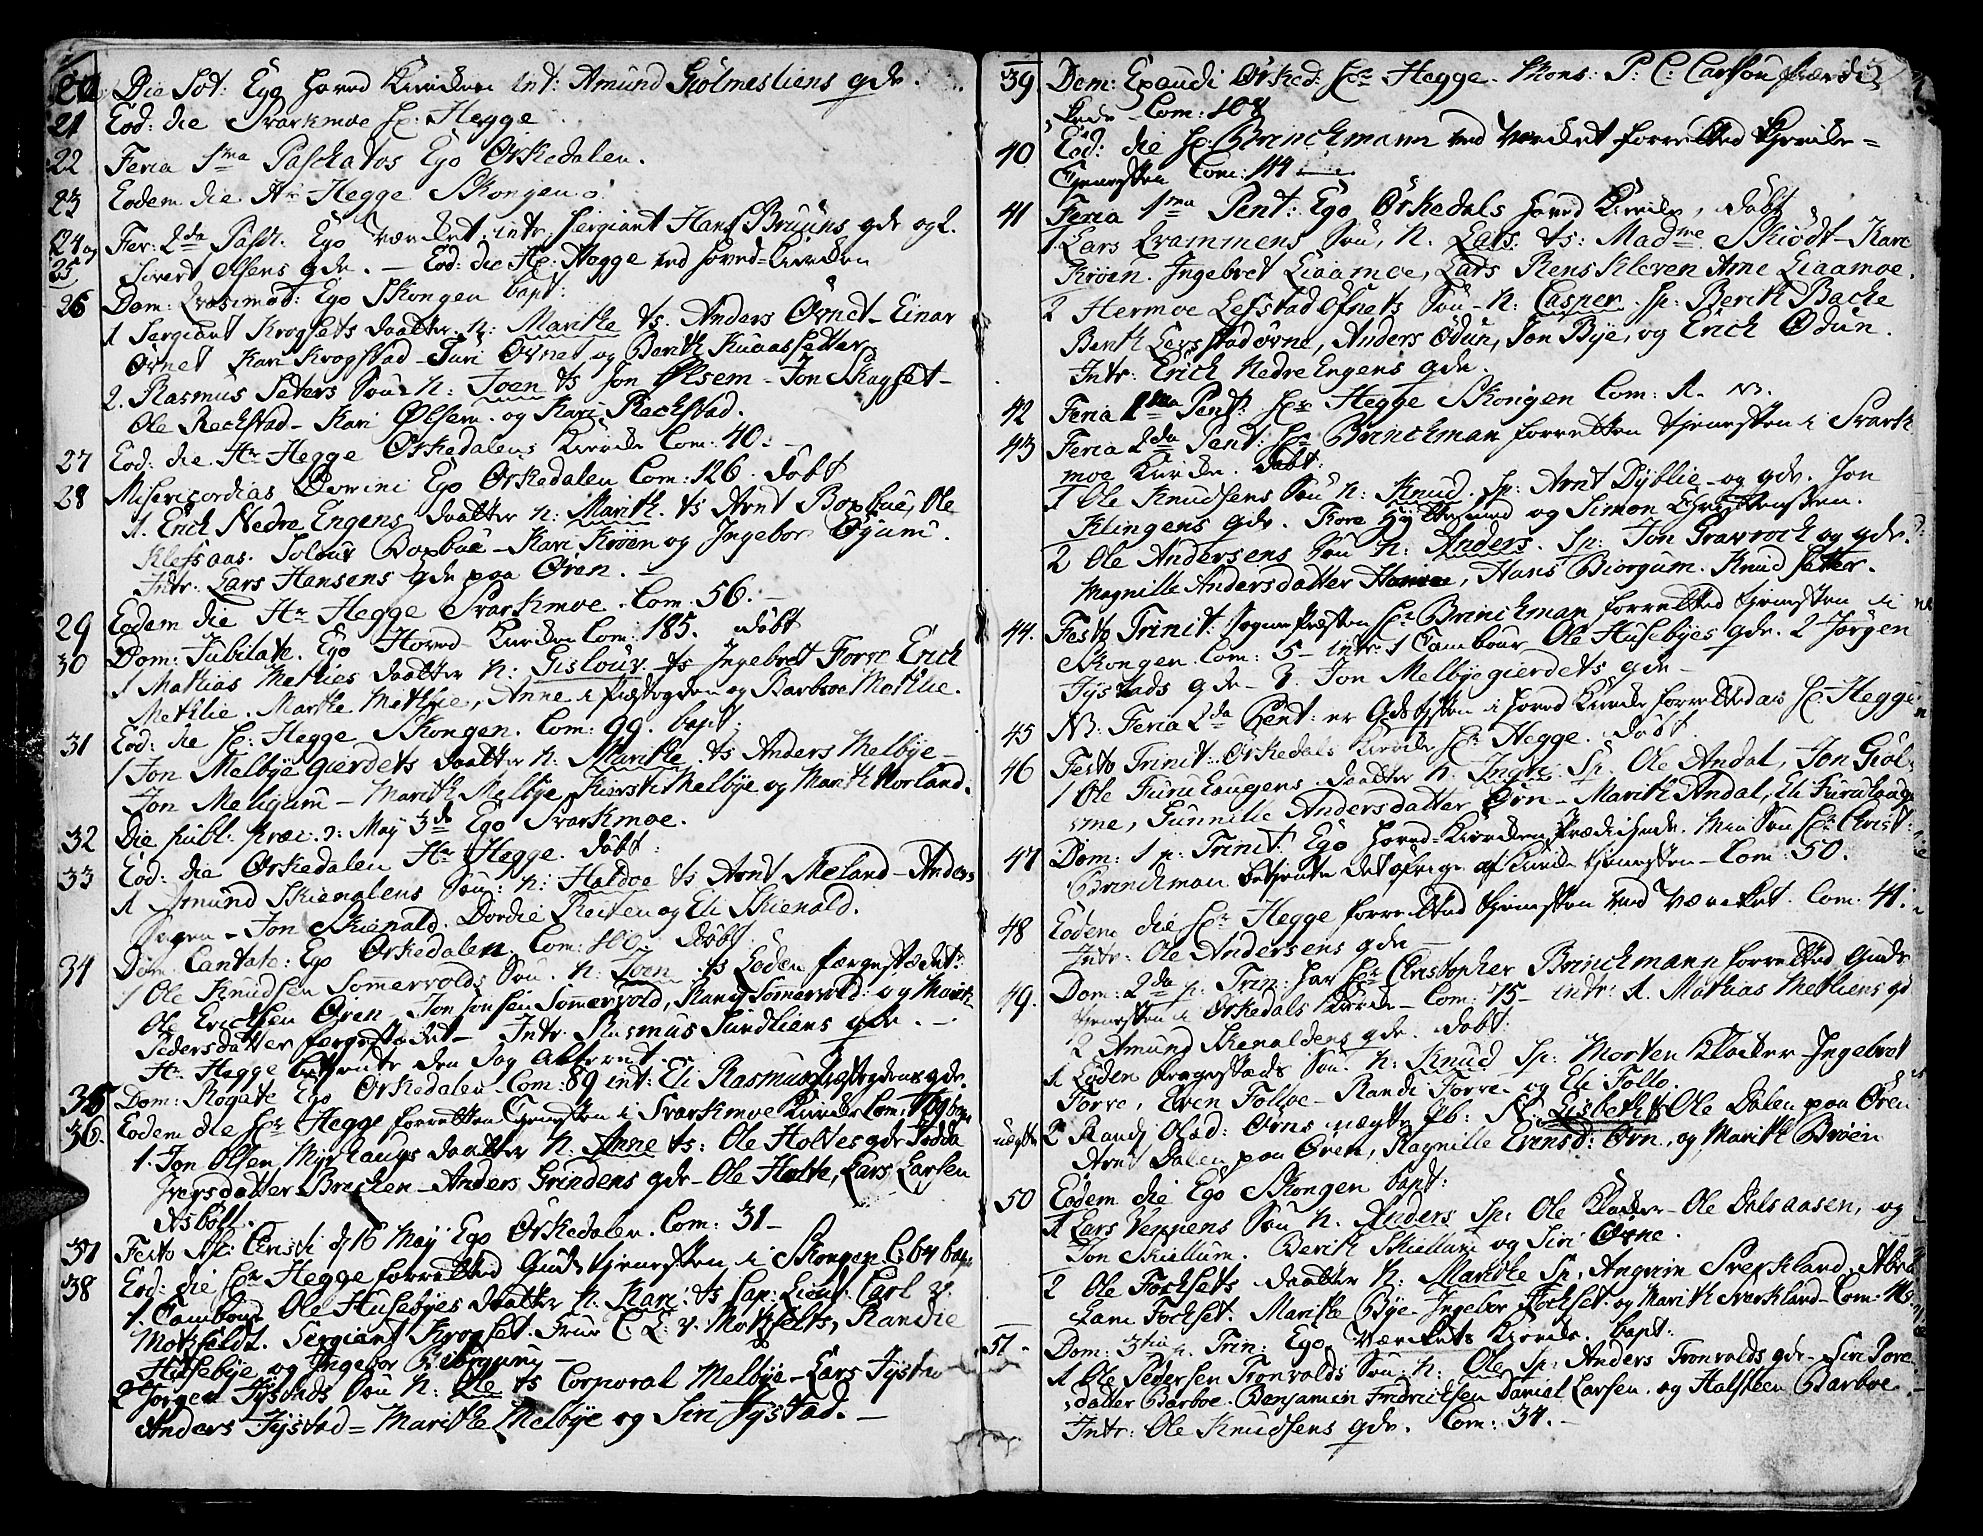 20 Die Sot: Ego hoved Kirken int: Amund Giolmesliens gde.
21 Eod: die Svarkmoe Hr: Hegge
22 Feria 1ma Paschatos Ego Örkedalen.
23 Eodem die Hr Hegge Skongen
24 og Fer: 2da Pasch. Ego Værcket. intr: Sergiant Hans Bruuns gde og 2.
25 Sivert Olsens gde. — Eod: die Hr: Hegge ved hoved-Kirken
26 Dom: Qvasimod: Ego Skongen bapt:
1 Sergiant Krogsets daatter n: Marithe ts. Anders Örnet - Einar
Örnet Kari Krogstad - Guri Örnet og Berith Knaassetter
2. Rasmus Peters Sön n: Joen ts Jon Olsem - Jon Skagset -
Ole Reckstad - Kari Olsem. og Kari Reckstad.
27 Eod: die Hr Hegge Örkedalens Kirke Com: 40. -
28 Misericordias Domini Ego Örkedalen Com: 126. döbt
1. Erich Nedre Engens daatter n: Marith. ts Arnt Boxbue, Ole
Klefsaas. Solour Boxbue - Kari Kroen og Ingebor Ögum.
Intr. Lars Hansens gde paa Ören. -
29 Eodem die Hr Hegge Svarkmoe. Com: 56. -
30 Dom: Jubilate. Ego Hoved Kirken Com: 185. döbt
1 Mathias Methlies daatter n: Gislour ts Ingebret Forre Erich
Methlie. Marthe Methlie, Anne i Præstegden og Barbroe Methlie.
31 Eod: die Hr: Hegge Skongen. Com: 99. bapt:
1 Jon Melbye gierdets daatter n: Marithe ts Anders Melbye -
Jon Meligum - Marith Melbye, Kiersti Melbye og Marith Norland.
32 Die publ: præc: d: May 3de Ego Svarkmoe.
33 Eod: die Örkedalen Hr Hegge. döbt:
1 Amund Skienalens Sön: n: Haldoe ts Arnt Meland - Anders
- Jon Skienald. Dordie Roiten og Eli Skienald.
34 Dom. Cantate: Ego Örkedalen. Com: 100. döbt
1 Ole Knudsen Somervolds Sön. n: Joen ts Loden færgestædet:
Ole Erichsen Ören. Jon Jonsen Somervold, Randi Somervold: og Marith
Pedersdatter færgestædet - Intr. Rasmus Sundliens gde. -
Hr Hegge betiente den dag alterret. -
35 Dom: Rogate Ego Örkedalen Com: 89 int: Eli Rasmus gde.
36. Eodem die Hr Hegge forretten Tienesten i Svarkmoe Kirke Com: bapt
1. Jon Olsen Myrhaugs daatter n. Anne ts: Ole Holtes gde Todda
Iversdatter Brecken - Anders Grindens gde - Ole Holte, Lars Larsen
Asbölt.
37 Festo Asc: Christi d 16 May Ego Örkedalen. Com: 31 -
38 Eod: die Hr Hegge forretted Guds tienesten i Skongen C: 64 bapt
1. Tambour Ole Husebyes daatter n: Kari ts Cap: Lieut: Carl v:
Motzfeldt. Sergiant Krogset. Frue C: L: v. Motzfelts, Randie
Husebye og Ingebor Biörgum -
2 Jörgen Tysstads Sön n: Ole ts Corporal Melbye - Lars Tystad
Anders Tystad = Marithe Melbye og Siri Tystad. -
39 Dom: Exaudi Örked: Hr Hegge. Mons: P: C: Carlson prædi-
kede - Com: 108
40 Eod: die Hr: Brinckmann ved Verchet forretted Kircke =
Tienesten Com: 114
41 Feria 1ma Pent: Ego Örkedals hoved Kircke, döbt
1. Lars Qvammens Sön, n. Lars. ts: Madme Skiödt - Kari
Kröen. Ingebret Liaamoe, Lars Renskleven Arne Liaamoe.
2 Hermoe Lefstad Öfnets Sön - n: Casper. sp: Berith Backe
Berith Lefstad övne, Anders Odun, Jon Bye, og Erich Odun.
Intr: Erich Nedre Engens gde.
42 Feria 1ma Pent: Hr: Hegge Skongen Com: 1. N3.
43 Feria 2da Pent: Hr Brinckman forretten tienesten i Svark
moe Kirke. döbt:
1 Ole Knudsens Sön n: Knud. sp: Arnt Dyblie - og gde. Jon
Klingens gde. Tore Hyttemed og Simon Christensen.
2 Ole Andersens Sön n: Anders. sp: Jon Gravrock og gde.
Magnille Andersdatter, Hans Biorgum. Knud setter.
44. Festo Trinit: Sogne Præsten Hr Brinckman forretted tienesten i
Skongen Com: 5 - intr. 1 Tambour Ole Husebyes gde. 2 Jörgen
Tystads gde - 3. Jon Melbyegierdets gde -
45 N3: Feria 2da Pent: er Gdstisten i hoved Kircke forrettedas Hr: Hegge
46 Festo Trinit: Örkedals Kirke Hr Hegge. döbt
1 Ole Furulaugens daatter n. Ingri. Sp. Ole Andal, Jon Giöl-
me, Gunnille Andersdatter Örn - Marith Andal, Eli Furulaug
47 Dom: 1 p: Trinit: Ego hoved-Kirken Prædickede. Min Sön Hr: Christ:
Brinckman betiente det öfrige af Kircke tienesten - Com: 50.
48 Eodem die Hr: Hegge forretted tienesten ved Værcket. Com: 41.
Intr: Ole Andersens gde -
49. Dom: 2da p. Trin: har Hr Christopher Brinckmann forretted Guds
tienesten i Örkedals Kircke - Com: 75 - intr: 1. Mathias Methliens gd
2 Amund Skenaldens gde. döbt:
1 Loden Fragestads Sön. n: Knud Sp: Morten Klocker Ingebret
Forre, Even Folloe - Randi Forre. og Eli Follo.
uægte 2 Randj Olsd: Örns uægte Pb: N: Lisbeth ts Ole Dalen paa Ören
Arnt Dalen paa Ören, Ragnille Evensd: Örn, og Marith Bröen
50 Eodem die Ego Skongen bapt:
1 Lars Veppens Sön n. Anders Sp: Ole Klocker - Ole Dalsaasen, og
Jon Skiellum. Berith Skiellum og Siri Övne.
2 Ole Fochsets daatter n: Marithe Sp: Anguin Sverkland. Abra
ham Fochset. Marithe Bye - Ingebor Fochset. og Marith Sverkland - Com:
51 - Dom: 3tia p. Trin: Ego Værckets Kircke. bapt:
1 Ole Pedersen Tronvolds Sön: n: Ole Sp: Anders Tronvolds gde - Siri Pers
datter Barboe. Benjamin Fridrichsen Daniel Larsen. og Halsteen Barboe.
Intr: Ole Knudsens gde. Com: 34. -